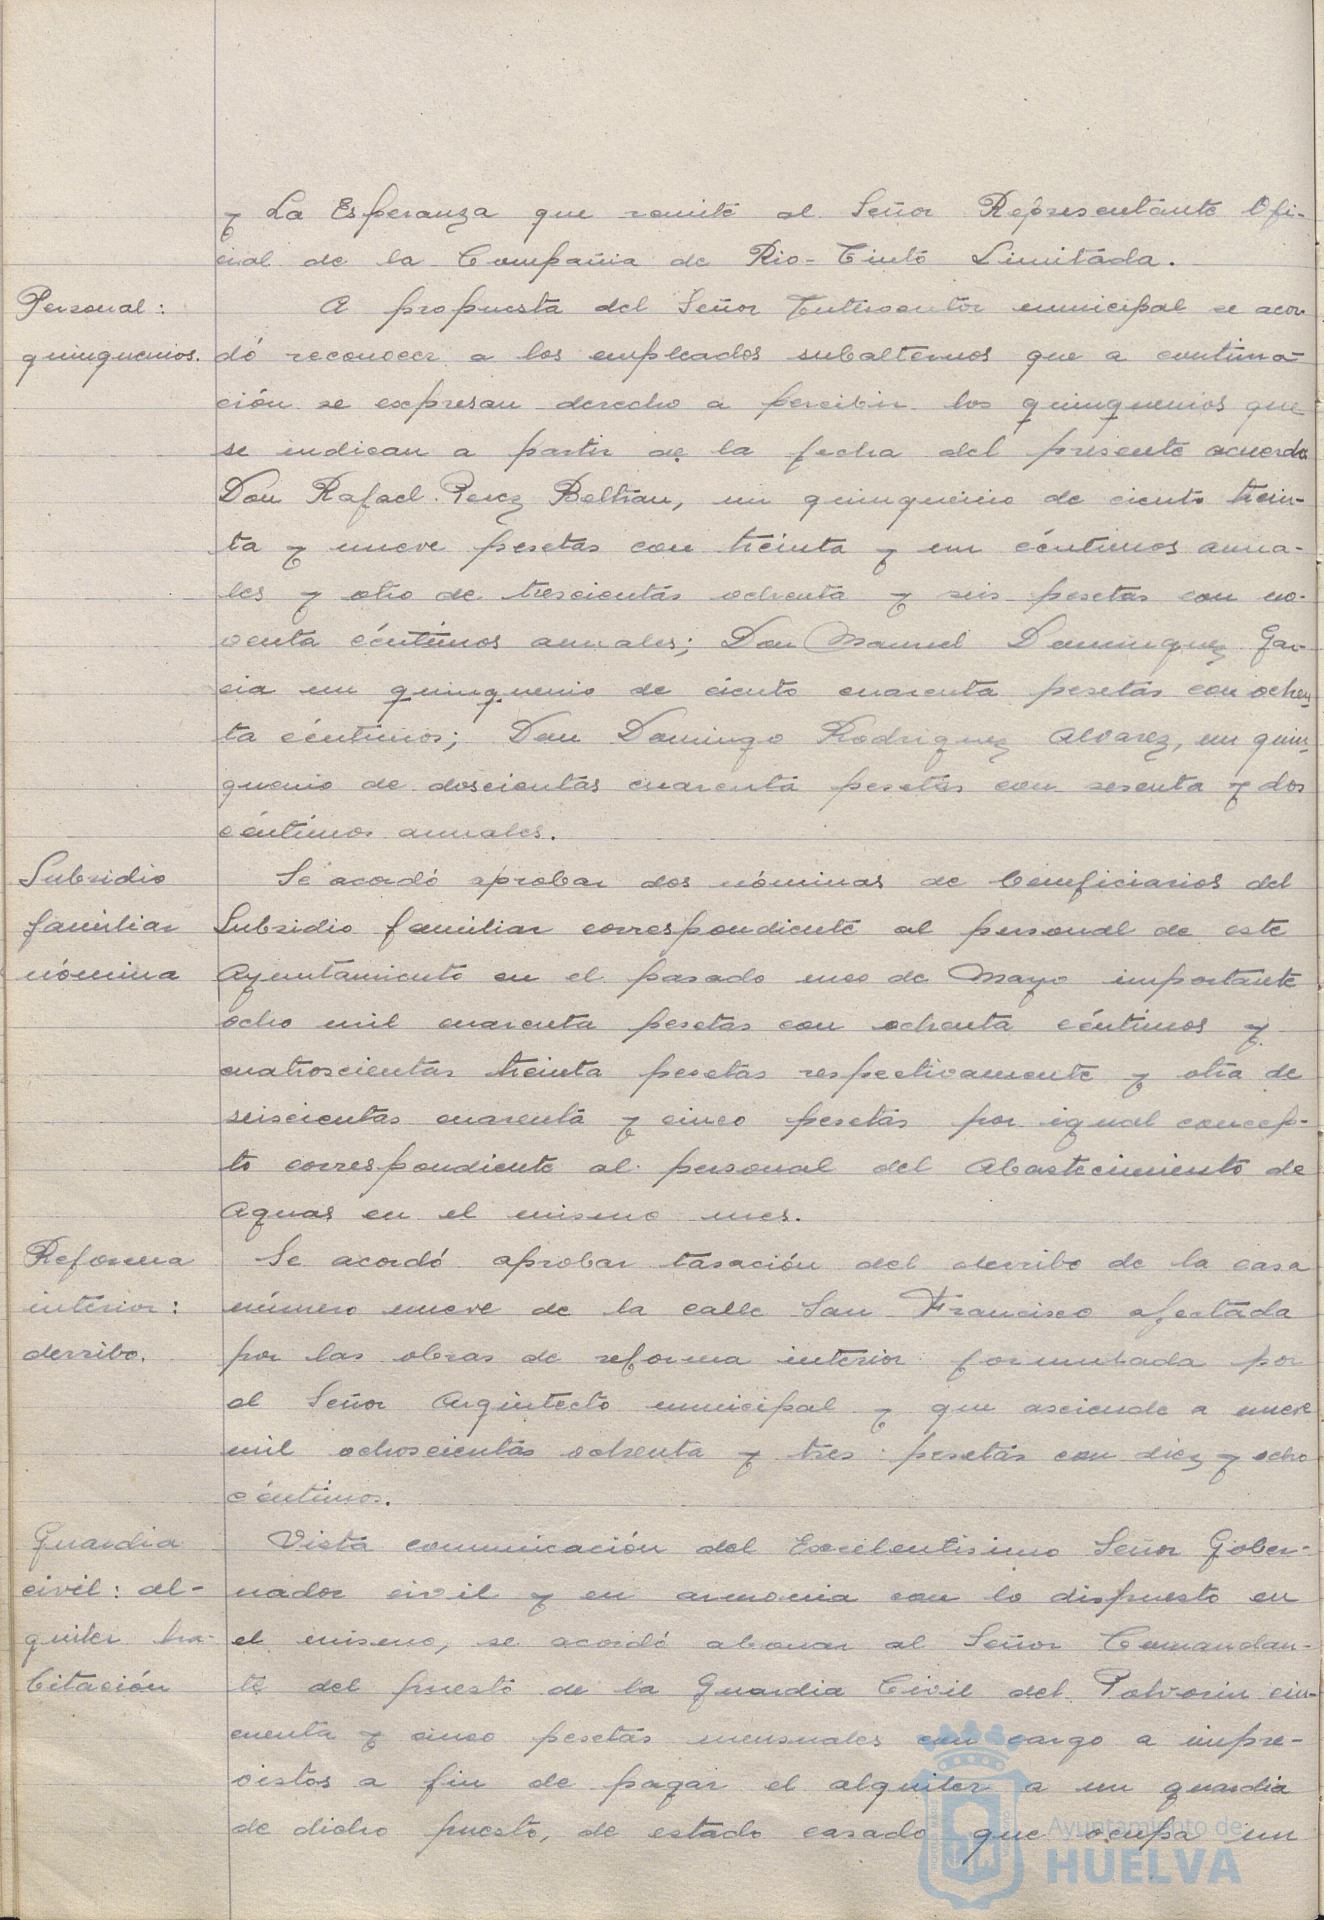 y La Esperanza que remite el Señor Representante Ofi-
cial de la Compañia de Rio-Tinto Limitada.
Personal:
quinquenios.
A propuesta del Señor Interventor municipal se acor
dó reconocer a los empleados subalternos que a continua-
ción se expresan derecho a percibir los quinquenios que
se indican a partir de la fecha del presente acuerdo
Don Rafael Perez Beltran, un quinquenio de ciento trein-
ta y nueve pesetas con treinta y un céntimos anua-
les y otro de trescientas ochenta y seis pesetas con no-
venta céntimos anuales; Don Manuel Dominguez Gar-
cia un quinquenio de ciento cuarenta pesetas con ochen
ta céntimos; Don Domingo Rodriguez Alvarez, un quin-
quenio de doscientas cuarenta pesetas con sesenta y dos
céntimos anuales.
Subsidio
familiar
nómina
Se acordó aprobar dos nóminas de beneficiarios del
Subsidio familiar correspondiente al personal de este
Ayuntamiento en el pasado mes de Mayo importante
ocho mil cuarenta pesetas con ochenta céntimos y
cuatroscientas treinta pesetas respectivamente y otra de
seiscientas cuarenta y cinco pesetas por igual concep-
to correspondiente al personal del Abastecimiento de
Aguas en el mismo mes.
Reforma
interior:
derribo.
Se acordó aprobar tasación del derribo de la casa
número nueve de la calle San Francisco afectada
por las obras de reforma interior formulada por
el Señor Arquitecto municipal y que asciende a nueve
mil ochoscientas ochenta y tres pesetas con diez y ocho
céntimos.
Guardia
civil: al-
quiler ha-
bitación
Vista comunicación del Excelentisimo Señor Gober-
nador civil y en armonia con lo dispuesto en
el mismo, se acordó abonar al Señor Comandan-
te del puesto de la Guardia Civil del Polvorin cin-
cuenta y cinco pesetas mensuales con cargo a impre-
vistos a fin de pagar el alquiler a un guardia
de dicho puesto, de estado casado que ocupa un
Ayuntamiento de
HUELVA